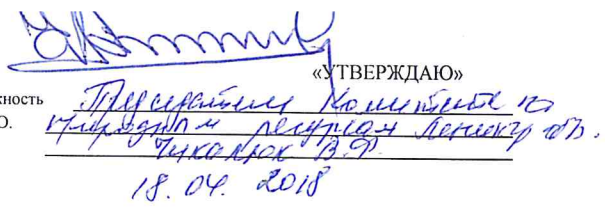 «УТВЕРЖДАЮ»
жность Председатель Комитета по
О. природным ресурсам Ленингр. обл.
Чикалюк В.Ф.
18.04.2018